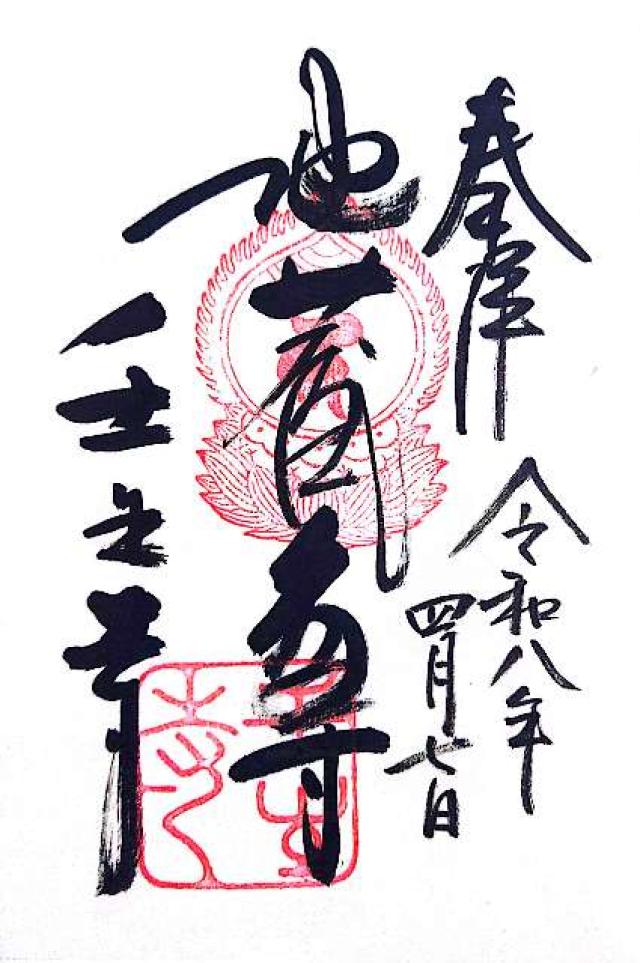 奉拝
令和八年
四月七日
地蔵尊
壬生寺